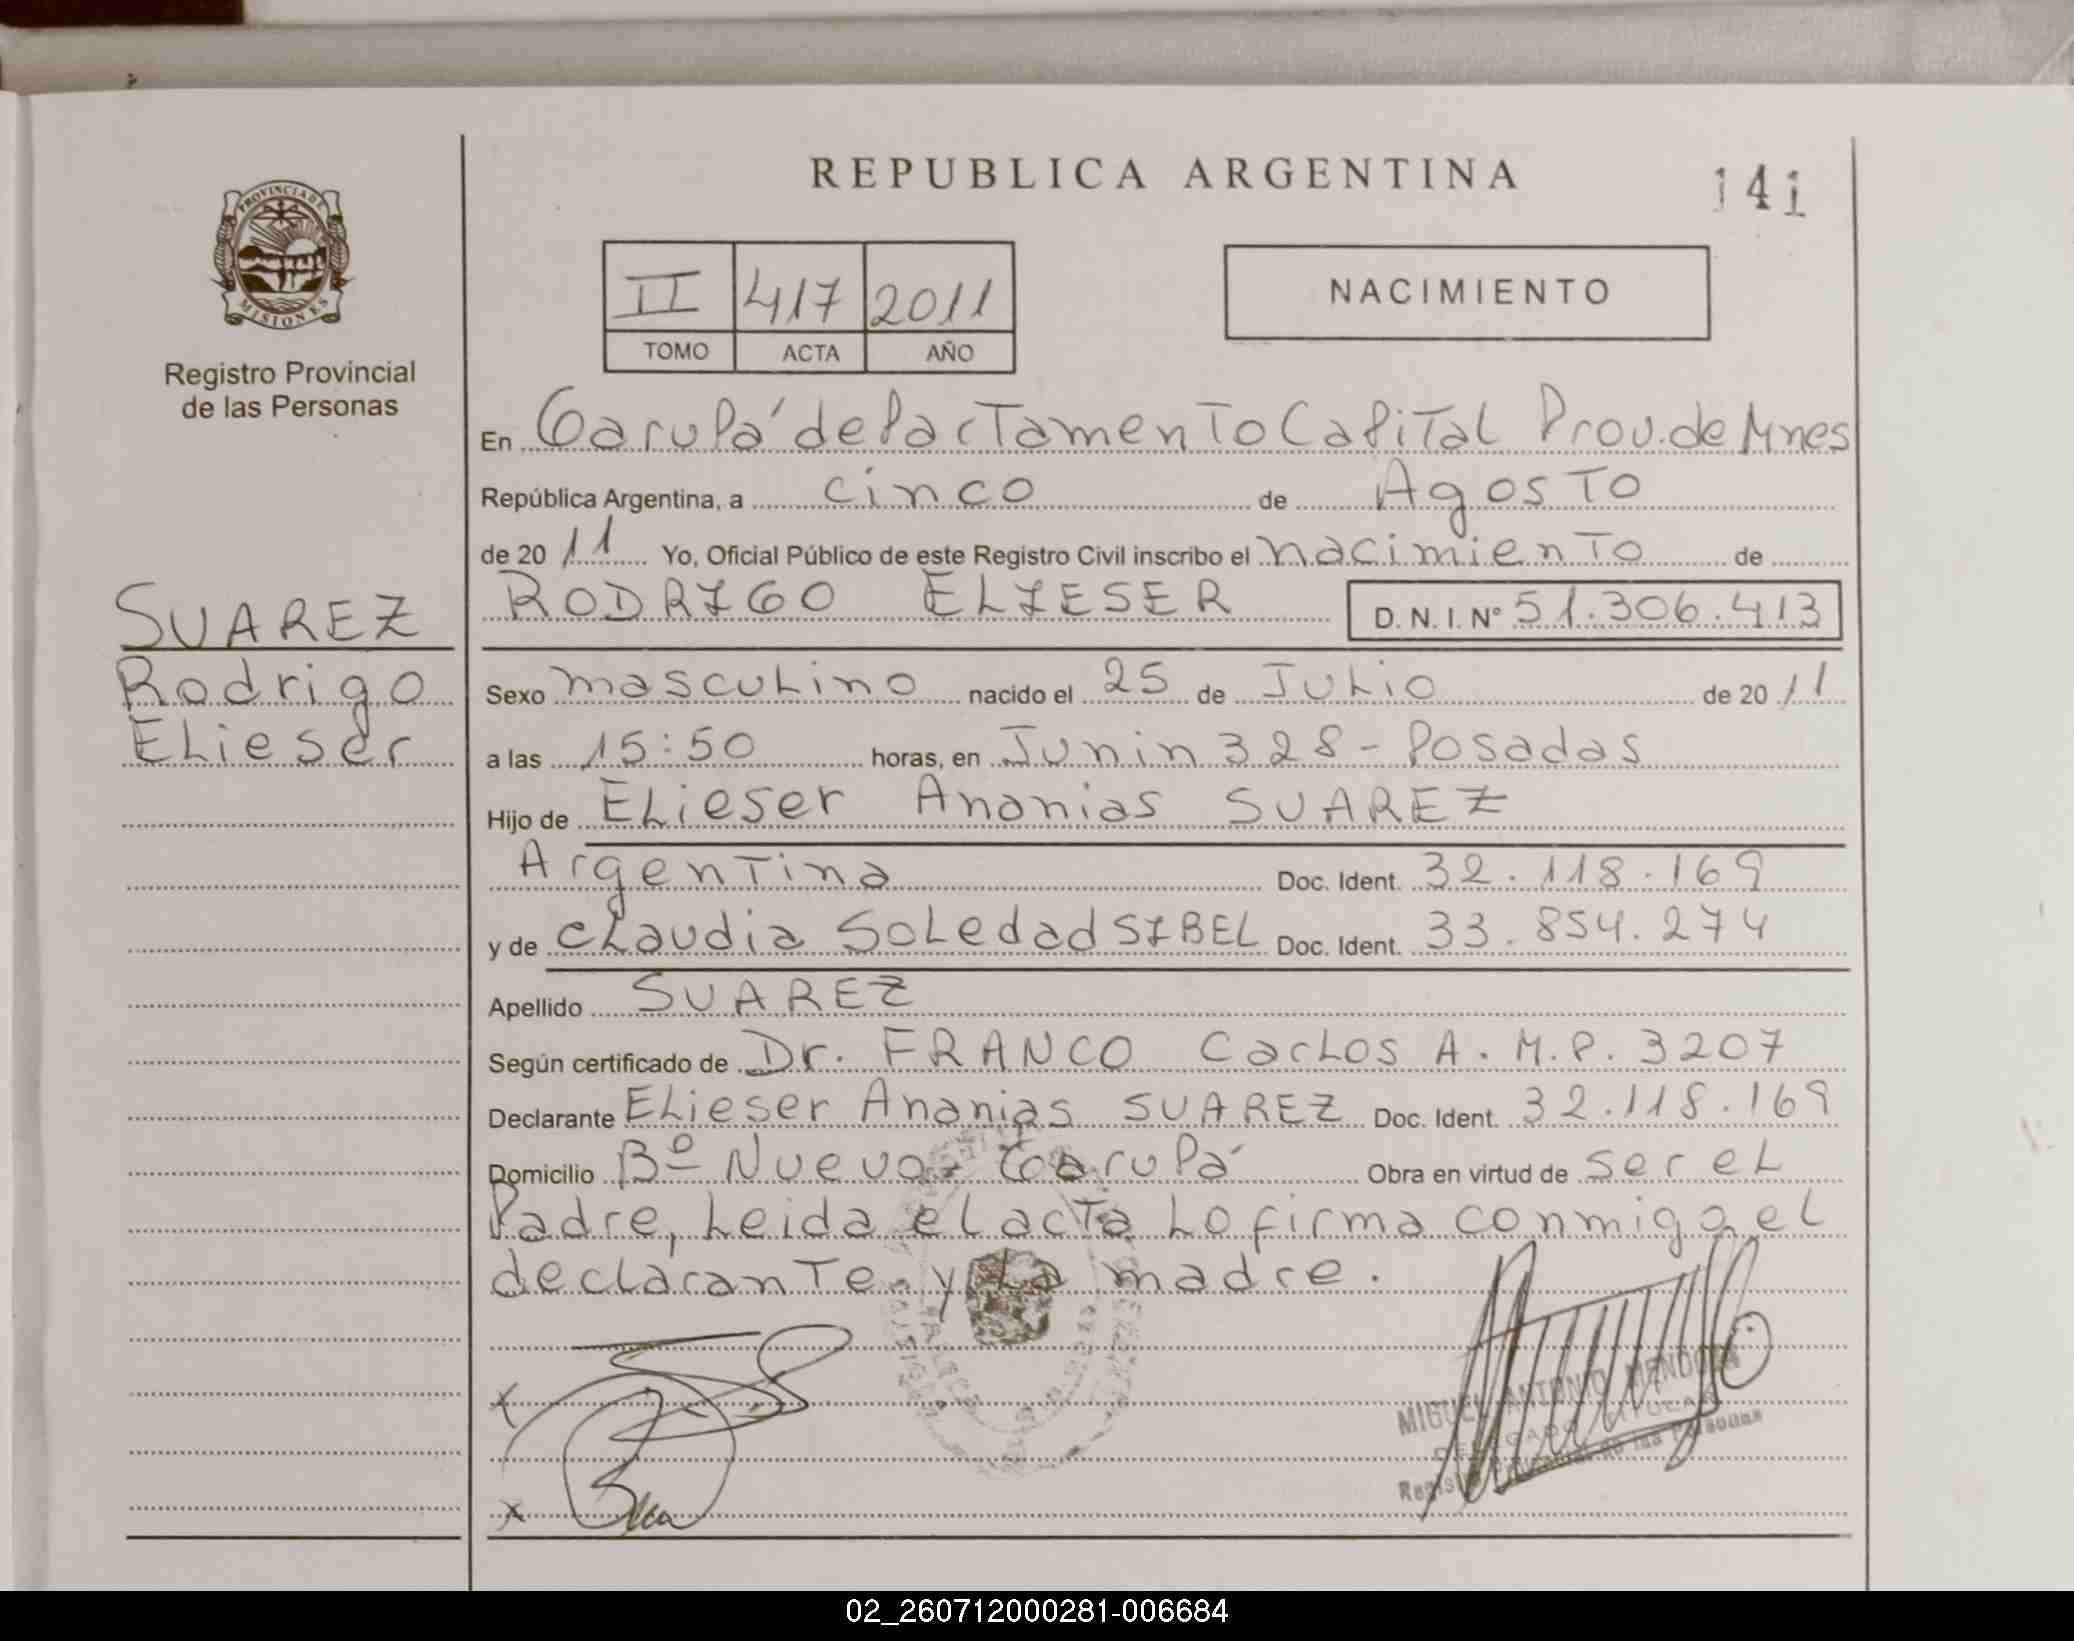 REPUBLICA ARGENTINA
141
PROVINCIA DE
MISIONES
Registro Provincial
de las Personas
II 417 2011
TOMO ACTA AÑO
NACIMIENTO
En Garupá departamento Capital Prov. de Mnes
República Argentina, a cinco de Agosto
de 2011 Yo, Oficial Público de este Registro Civil inscribo el nacimiento de
RODRIGO ELIESER D. N. I. Nº 51.306.413
SUAREZ
Rodrigo
Elieser
Sexo masculino nacido el 25 de Julio de 2011
a las 15:50 horas, en Junin 328 - Posadas
Hijo de Elieser Ananias SUAREZ
Argentina Doc. Ident. 32.118.169
y de Claudia Soledad SIBEL Doc. Ident. 33.854.274
Apellido SUAREZ
Según certificado de Dr. FRANCO Carlos A. M.P. 3207
Declarante Elieser Ananias SUAREZ Doc. Ident. 32.118.169
Domicilio Bº Nuevo - Garupá Obra en virtud de ser el
Padre, Leida el acta Lo firma conmigo el
declarante y La madre.
MIGUEL ANTONIO MENDOZA
DELEGADO TITULAR
Registro Provincial de las Personas
02_260712000281-006684